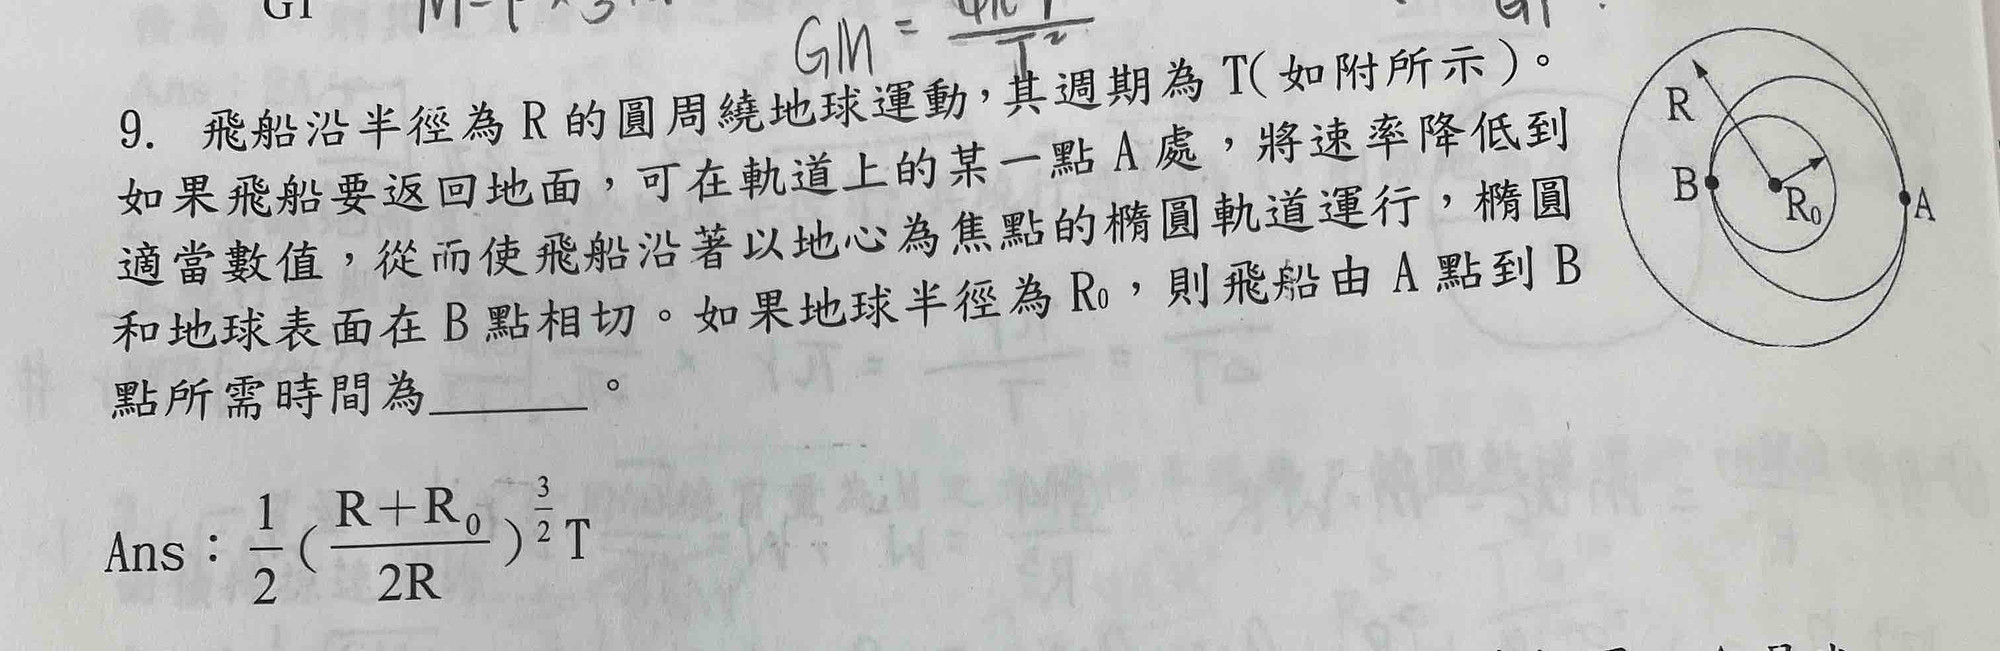 GM = 4π
T²
9. 飛船沿半徑為 R 的圓周繞地球運動，其週期為 T(如附所示)。
如果飛船要返回地面，可在軌道上的某一點 A 處，將速率降低到
適當數值，從而使飛船沿著以地心為焦點的橢圓軌道運行，橢圓
和地球表面在 B 點相切。如果地球半徑為 R₀，則飛船由 A 點到 B
點所需時間為______。
R
B
R₀
A
Ans：1/2(R+R₀/2R)^(3/2) T